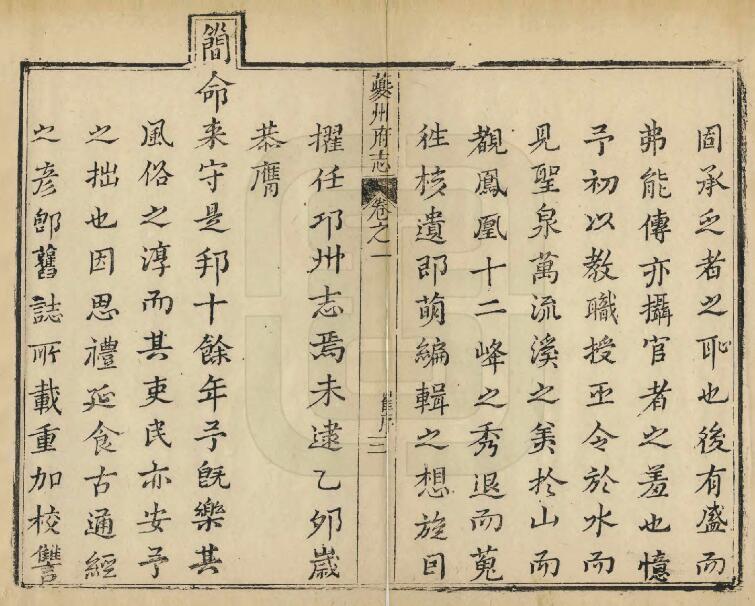 固承乏者之耻也後有盛而
弗能傳亦攝官者之羞也憶
予初以教職授巫令於水而
見聖泉萬流溪之美於山而
觀鳳凰十二峰之秀退而蒐
往核遺即萌編輯之想旋因
夔州府志 卷之一 崔序 三
擢任邛州志焉未逮乙卯歲
恭膺
簡命来守是邦十餘年予既樂其
風俗之淳而其吏民亦安予
之拙也因思禮延食古通經
之彦郎舊誌所載重加校讐